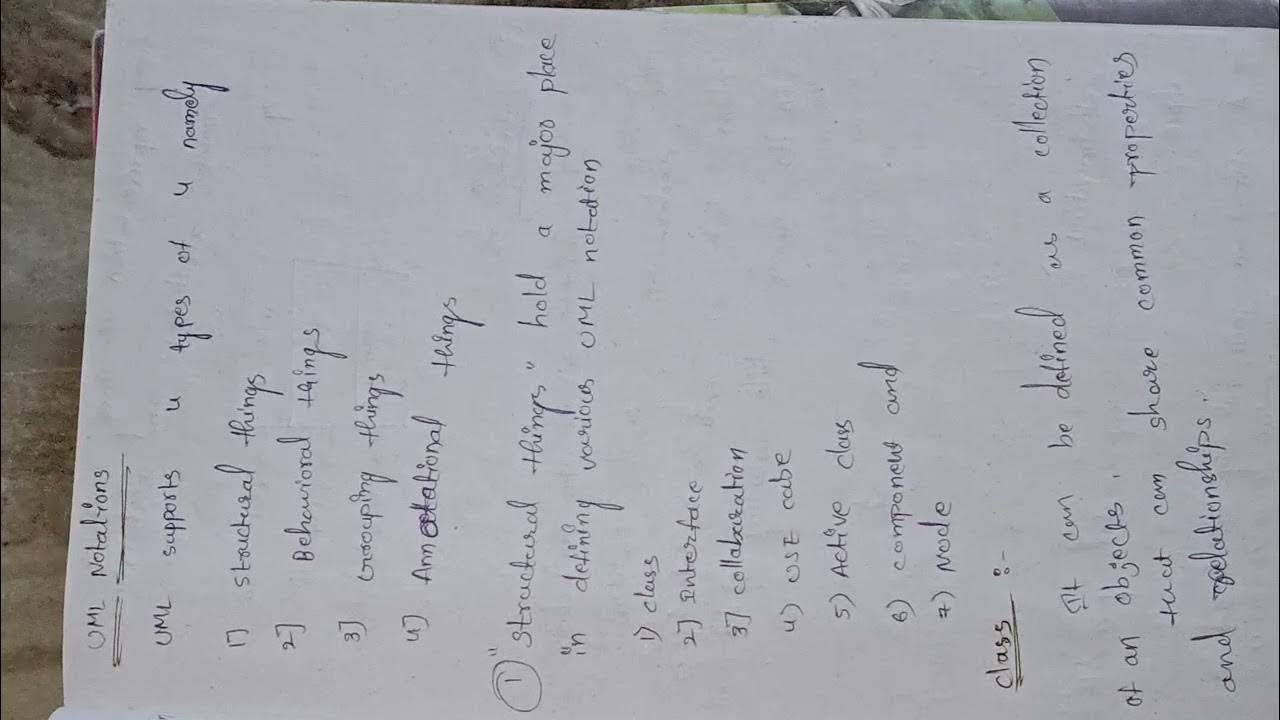 UML Notations
UML supports 4 types of 4 namely
1] structural things
2] Behavioral things
3] Grouping things
4] Annotational things
① "structural things" hold a major place
in defining various UML notation
1) class
2] Interface
3] collaboration
4) USE case
5) Active class
6) component and
7) Node
class :-
It can be defined as a collection
of an objects,
that can share common properties
and relationships.